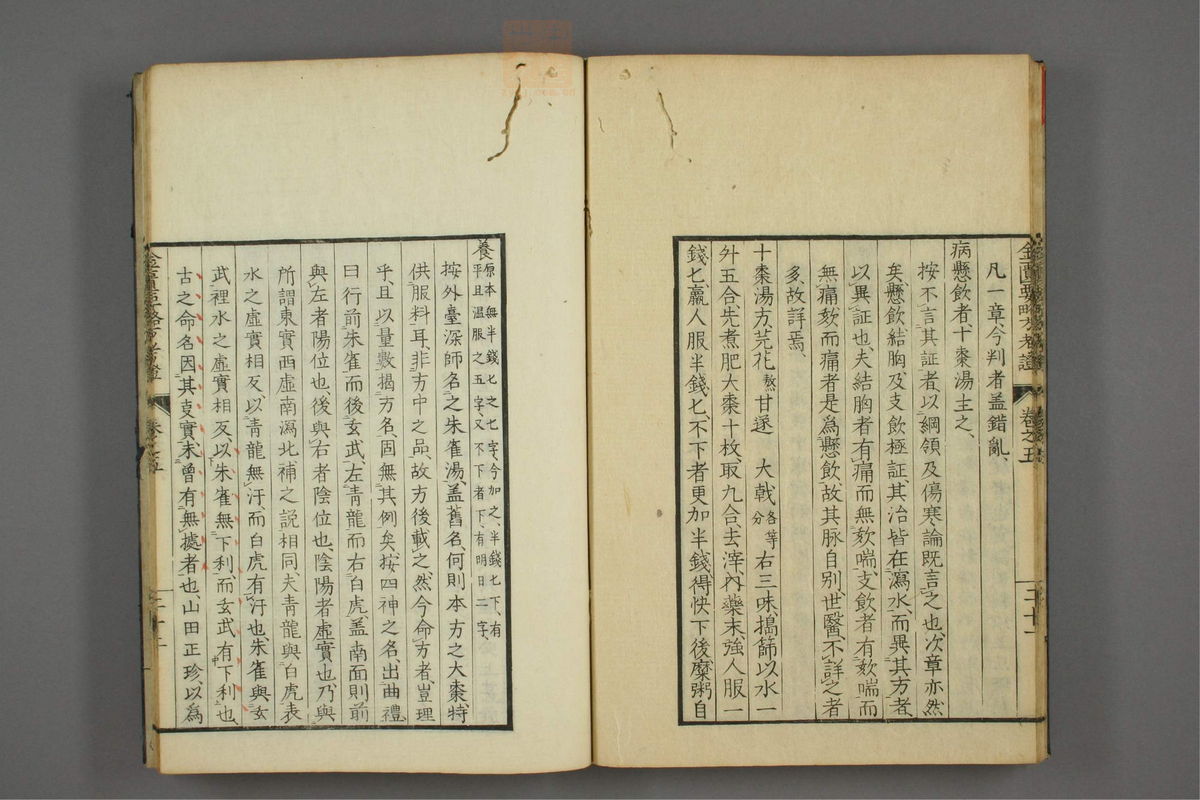 金匱要略方考證 卷之五 三十一
凡一章、今判者蓋錯亂、
病懸飲者、十棗湯主之、
按、不言其証者、以綱領及傷寒論既言之也、次章亦然
矣、懸飲結胸及支飲極証、其治皆在瀉水、而異其方者、
以異証也、夫結胸者、有痛而無欬喘、支飲者、有欬喘而
無痛、欬而痛者、是爲懸飲、故其脉自別、世醫不詳之者
多、故詳焉、
十棗湯方、芫花 熬 甘遂 大戟 各等分 右三味、搗篩、以水一
外五合、先煮肥大棗十枚、取九合、去滓、內藥末、強人服一
錢匕、羸人服半錢匕、不下者、更加半錢、得快下後、糜粥自
養 原本無半錢匕之七字、今加之、半錢匕下、有
平旦温服之五字、又不下者下、有明日二字、
按、外臺深師名之朱雀湯、蓋舊名、何則本方之大棗、特
供服料耳、非方中之品、故方後載之、然今命方者、豈理
乎、且以量數揭方名、固無其例矣、按四神之名、出曲禮
曰、行前朱雀而後玄武、左青龍而右白虎、蓋南面則前
與左者陽位也、後與右者陰位也、陰陽者虛實也、乃與
所謂東實西虛南瀉北補之説相同、夫青龍與白虎、表
水之虛實相反、以青龍無汗、而白虎有汗也、朱雀與玄
武、裡水之虛實相反、以朱雀無下利、而玄武有下利也、
古之命名、因其叓實、未曾有無據者也、山田正珍、以爲